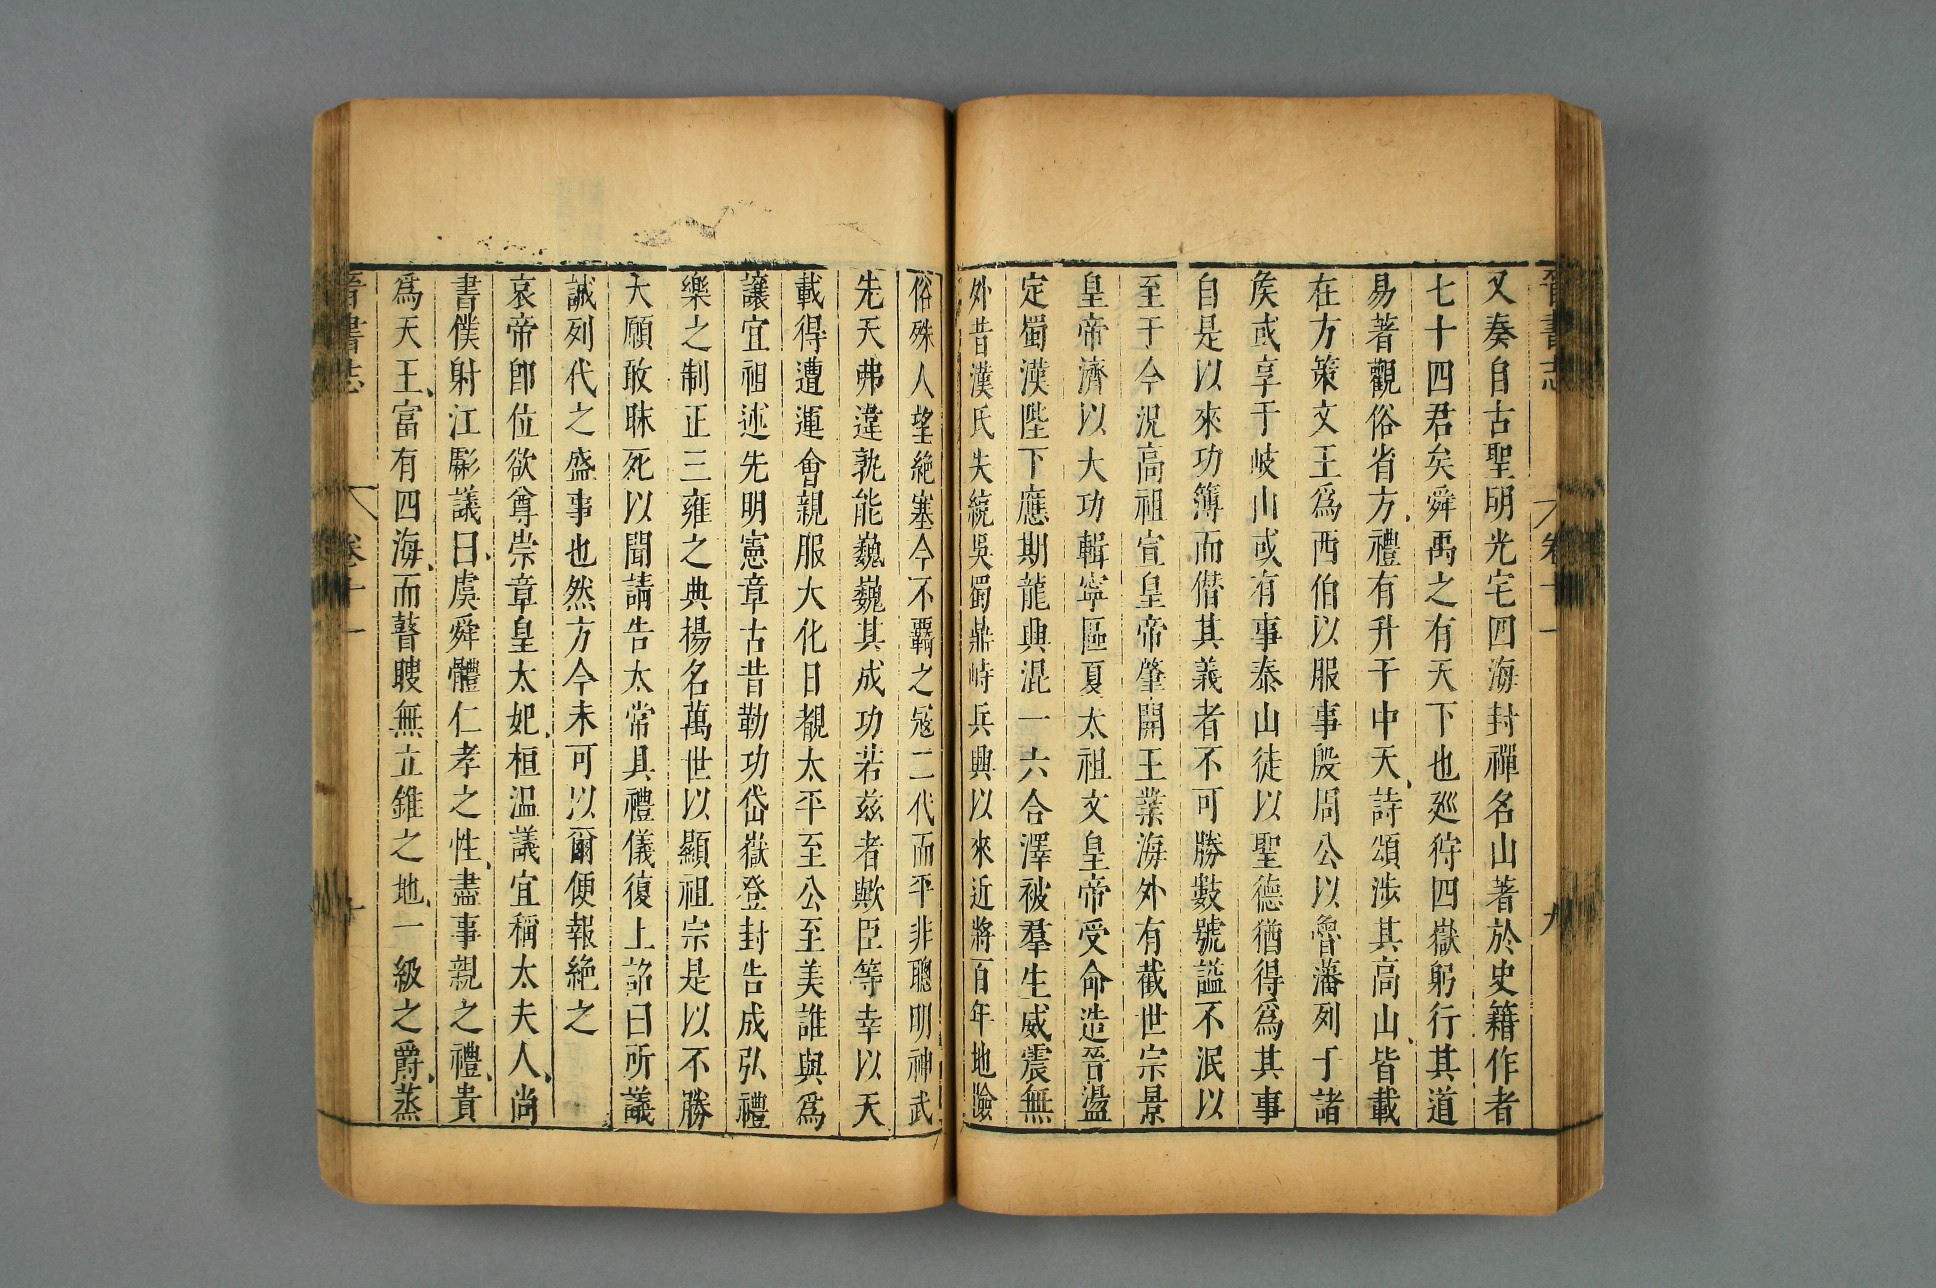 晉書志 卷十一 九
又奏自古聖明光宅四海封禪名山著於史籍作者
七十四君矣舜禹之有天下也廵狩四嶽躬行其道
易著觀俗省方禮有升于中天詩頌涉其高山皆載
在方策文王爲西伯以服事殷周公以魯藩列于諸
矦或享于岐山或有事泰山徒以聖德猶得爲其事
自是以來功簿而僭其義者不可勝數號謚不泯以
至于今況高祖宣皇帝肇開王業海外有截世宗景
皇帝濟以大功輯寧區夏太祖文皇帝受命造晉盪
定蜀漢陛下應期龍興混一六合澤被羣生威震無
外昔漢氏失統吳蜀鼎峙兵興以來近將百年地險
俗殊人望絶塞今不羈之寇二代而平非聰明神武
先天弗違孰能巍巍其成功若茲者歟臣等幸以天
載得遭運會親服大化目覩太平至公至美誰與爲
讓宜祖述先明憲章古昔勒功岱嶽登封告成弘禮
樂之制正三雍之典揚名萬世以顯祖宗是以不勝
大願敢昧死以聞請告太常具禮儀復上詔曰所議
誠列代之盛事也然方今未可以爾便報絶之
哀帝卽位欲尊崇章皇太妃桓温議宜稱太夫人尚
書僕射江虨議曰虞舜體仁孝之性盡事親之禮貴
爲天王富有四海而瞽瞍無立錐之地一級之爵蒸
晉書志 卷十一 十